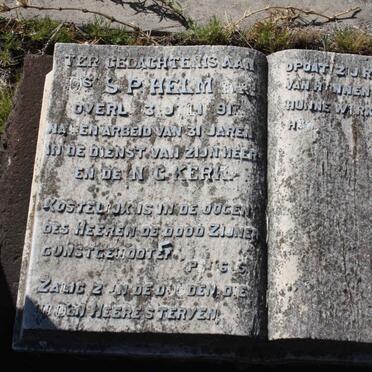 TER GEDACHTENIS AAN
DS S.P. HELM
OVERL. 3 JULI 191
NA EEN ARBEID VAN 31 JAREN
IN DE DIENST VAN ZIJN HEER
EN DE N.G. KERK.
KOSTELIJK IS IN DE OOGEN
DES HEEREN DE DOOD ZIJNER
GUNSTGENOOTEN
ZALIG ZIJN DE DOODEN DIE
IN DEN HEERE STERVEN.
OPDAT ZIJ R
VAN HUNNEN
HUNNE WERK